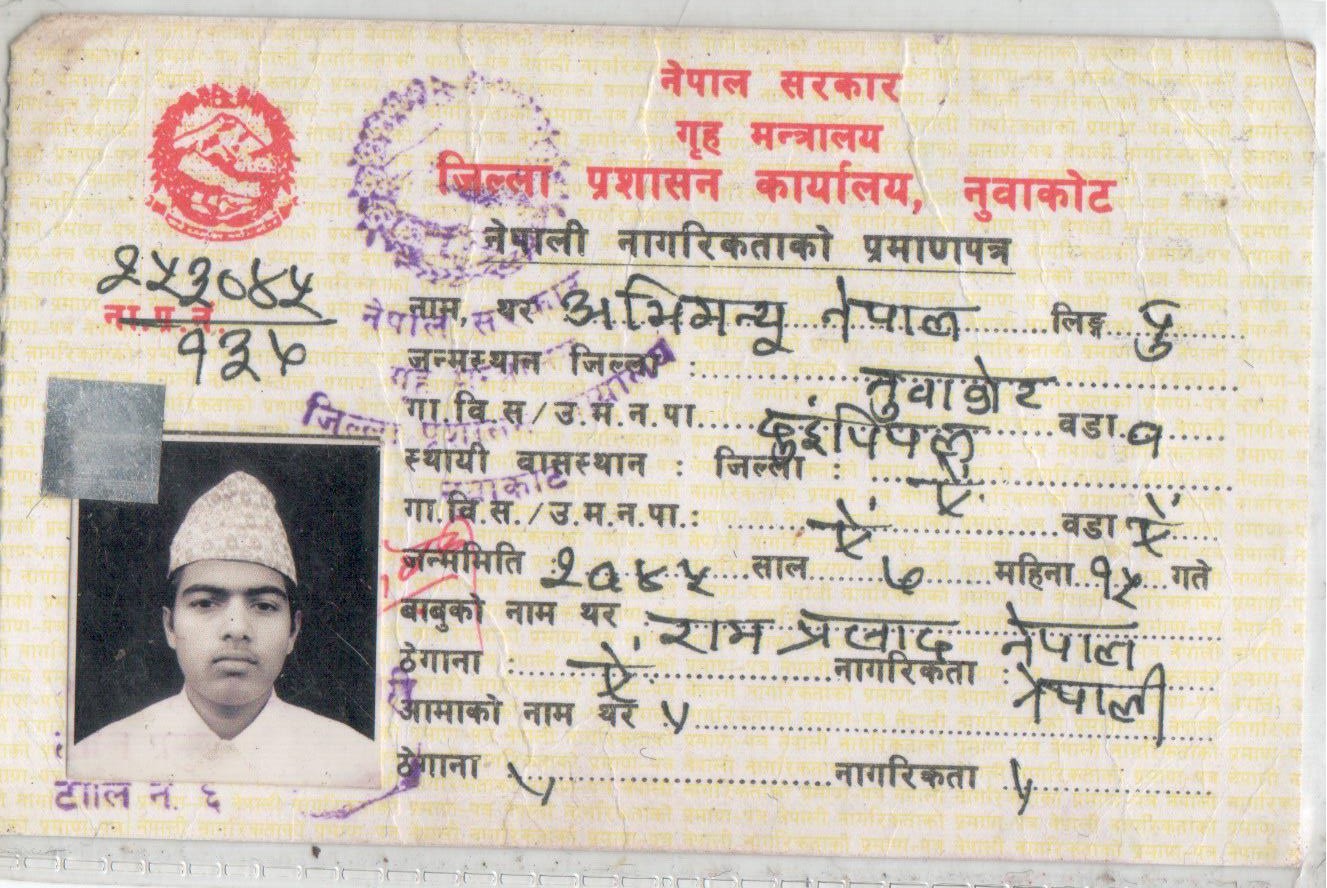 नेपाल सरकार
गृह मन्त्रालय
जिल्ला प्रशासन कार्यालय, नुवाकोट
नेपाली नागरिकताको प्रमाणपत्र
२५३०४५
ना.प्र.नं.
१३५
नाम, थर अभिमन्यू नेपाल लिङ्ग पु
जन्मस्थान जिल्ला : नुवाकोट
गा.वि.स/उ.म.न.पा. दुइपिपल वडा १
स्थायी वासस्थान : जिल्ला : ऐं
गा.वि.स./उ.म.न.पा.: ऐं वडा ऐं
जन्ममिति २०४५ साल ७ महिना १५ गते
बाबुको नाम थर राम प्रसाद नेपाल
ठेगाना : ऐं नागरिकता : नेपाली
आमाको नाम थर :
ठेगाना नागरिकता :
नेपाल सरकार
जिल्ला प्रशासन
नुवाकोट
टोलि नं. ६